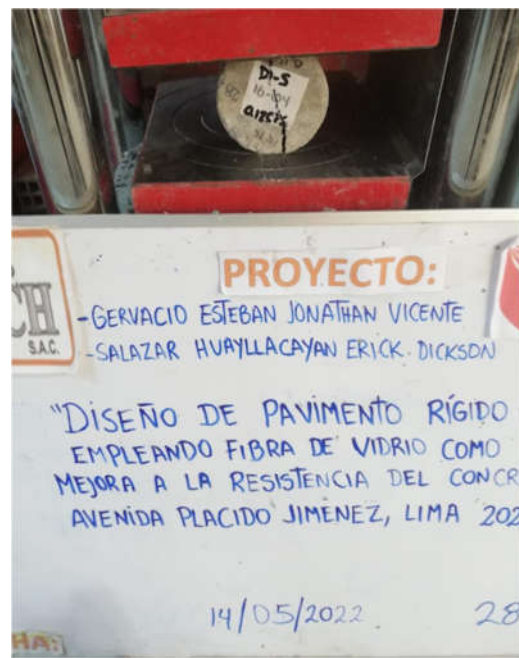 D1-S
PROYECTO:
CH
S.A.C.
-GERVACIO ESTEBAN JONATHAN VICENTE
-SALAZAR HUAYLLACAYAN ERICK. DICKSON
"DISEÑO DE PAVIMENTO RÍGIDO
EMPLEANDO FIBRA DE VIDRIO COMO
MEJORA A LA RESISTENCIA DEL CONCR
AVENIDA PLACIDO JIMENEZ, LIMA 202
14/05/2022 28
HA: